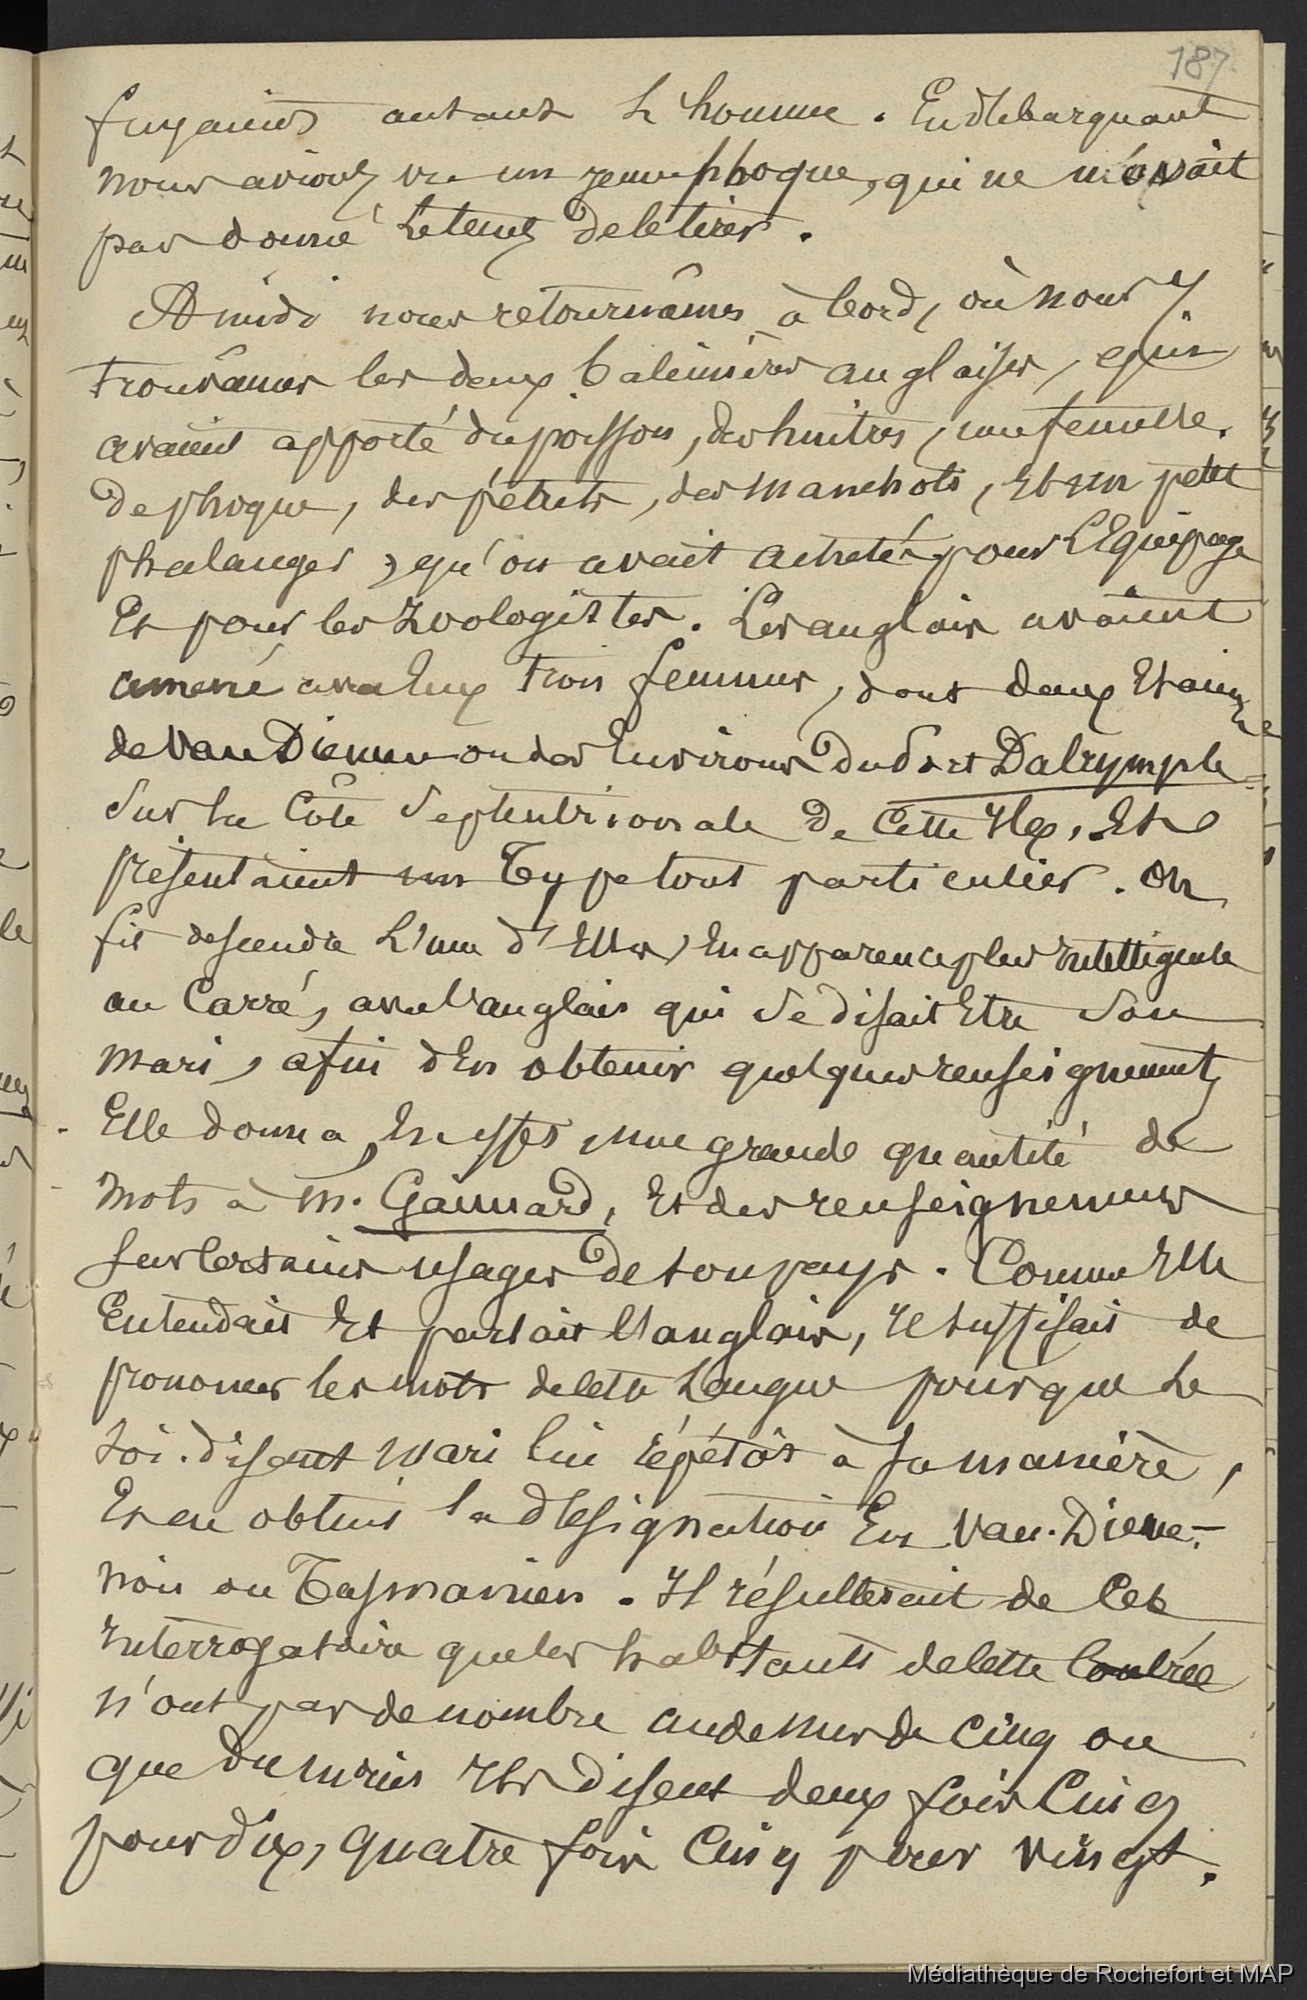 187
fuyaient autant l'homme. En débarquant
nous avions vu un jeune phoque, qui ne m'avait
pas donné le temps de le tirer.
A midi nous retournâmes à bord, où nous y
trouvâmes les deux baleinières anglaises, qui
avaient apporté du poisson, des huitres, une femelle
de phoque, des pétrels, des manchots, et un petit
phalanger, qu'on avait acheté pour l'Equipage
Et pour les zoologistes. Les anglais avaient
amené avec Eux trois femmes, dont deux Etaient
de Van Diemen ou des Environs du Port Dalrymple
sur la Côte septentrionale de cette Ile, Et
présentaient un Type tout particulier. On
fit descendre l'une d'Elles, En apparence plus intelligente
au Carré, avec l'anglais qui se disait Etre son
mari, afin d'En obtenir quelques renseignements
Elle donna, En effet, une grande quantité de
mots à M. Gaimard, Et des renseignements
sur certains usages de son pays. Comme Elle
Entendait Et parlait l'anglais, il suffisait de
prononcer les mots de cette langue pour que le
soi-disant mari lui répétât à sa manière,
Et en obtint la désignation En Van-Dieme-
nois ou Tasmanien. Il résulterait de cet
interrogatoire que les habitants de cette Contrée
n'ont pas de nombre au dessus de cinq ou
que du moins ils disent deux fois Cinq
pour dix, quatre fois Cinq pour vingt.
Médiathèque de Rochefort et MAP